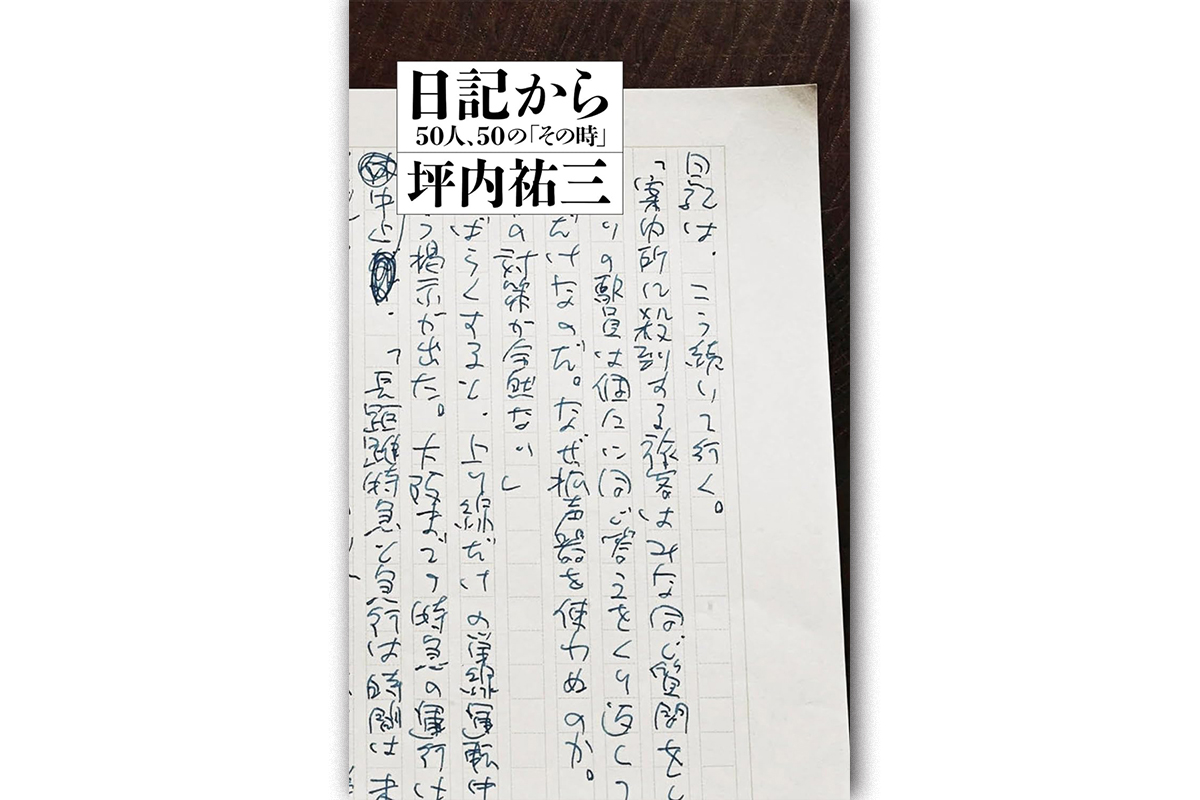 日記から
50人、50の「その時」
坪内祐三
日記は、こう続いて行く。
「案内所に殺到する旅客はみな同じ質問をし
りの駅員は個々に同じ答えをくり返して
だけなのだ。なぜ拡声器を使わぬのか。
の対策が全然ない」
ばらくすると、上り線だけの単線運転中
う掲示が出た。大阪までの特急の運行は
中止、「長距離特急と急行は時間は未